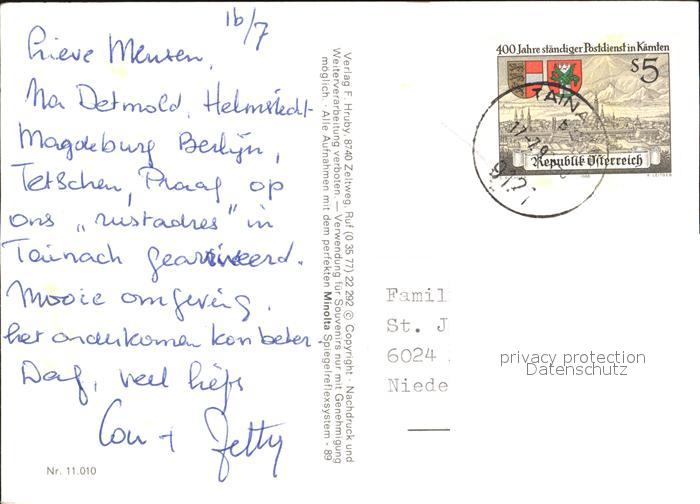 16/7
Lieve Mensen,
Na Detmold, Helmstedt-
Magdeburg Berlijn,
Tetschen, Praag op
ons „rustadres" in
Tainach gearriveerd.
Mooie omgeving,
het onderkomen kon beter.
Dag, veel liefs
Cou + Jetty
Nr. 11.010
Verlag F. Hruby, 8740 Zeltweg, Ruf (0 35 77) 22 292 © Copyright · Nachdruck und
Weiterverarbeitung verboten. — Verwendung für Souvenirs nur mit Genehmigung
möglich. · Alle Aufnahmen mit dem perfekten Minolta Spiegelreflexsystem - 89
400 Jahre ständiger Postdienst in Kärnten
S 5
TAINA
17.-7.
9121
Republik Österreich
1988
Famil
St. J
6024
Niede
privacy protection
Datenschutz